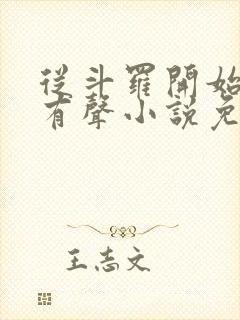 從斗羅開始
有聲小說免
王志文